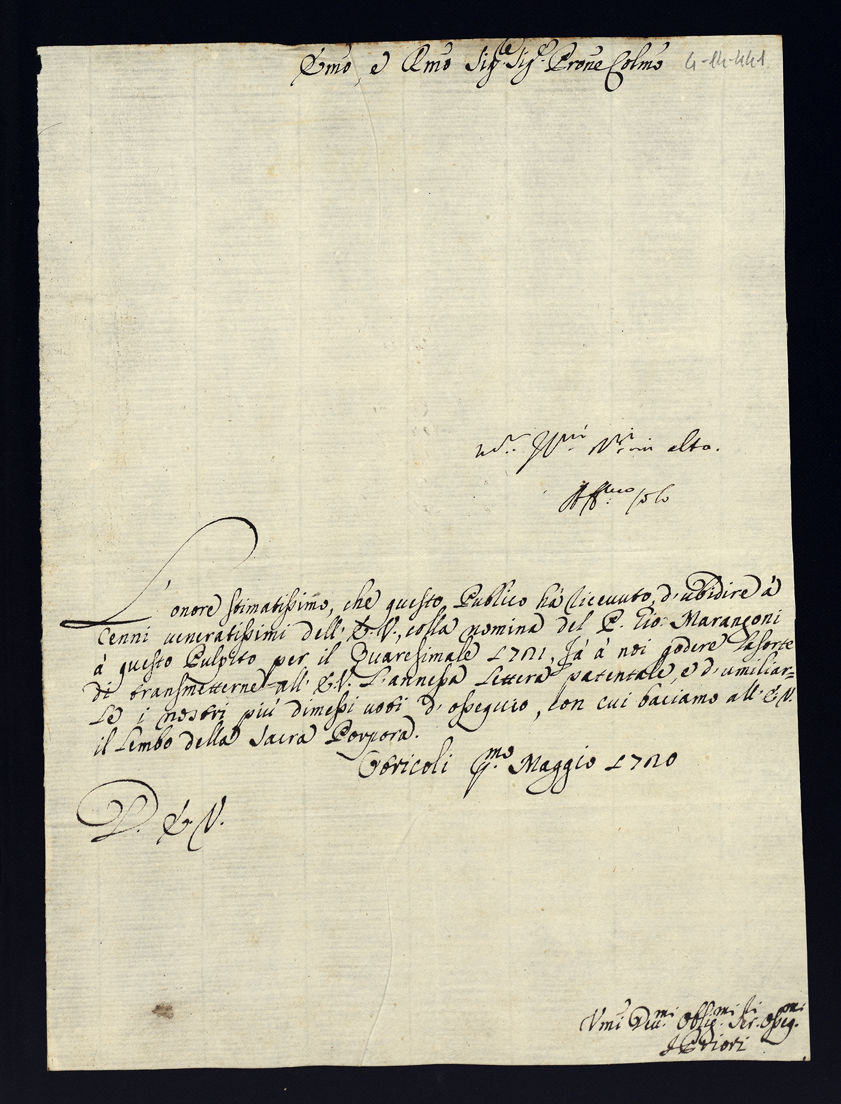 Emo, e Rmo Sigre Sigre Prone Colmo 4-14-441
alto.
L'onore stimatissimo, che questo Publico hà ricevuto, d'ubidire à
cenni veneratissimi dell' E. V., colla nomina del P. Gio: Marangoni
à questo Pulpito per il Quaresimale 1721, fà à noi godere la sorte
di transmetterne all' E. V. l'annessa lettera patentale, e d'umiliar=
le i nostri più dimessi voti d'ossequio, con cui baciamo all' E. V.
il lembo della Sacra Porpora.
Otricoli Pmo Maggio 1720
D. E. V.
Vmi Devmi Obligmi Ser. Osseqmi
I Priori